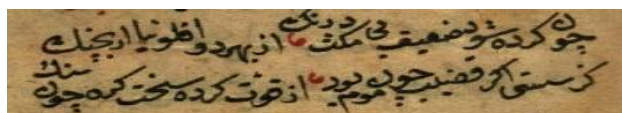 چون کرده شود ضعیف بی مکث و درنک از بهر دوا فلونیا ار بچنک
کز سستی اکر قضیب چون موم بود از قوت کرده سخت کرده چون سنک